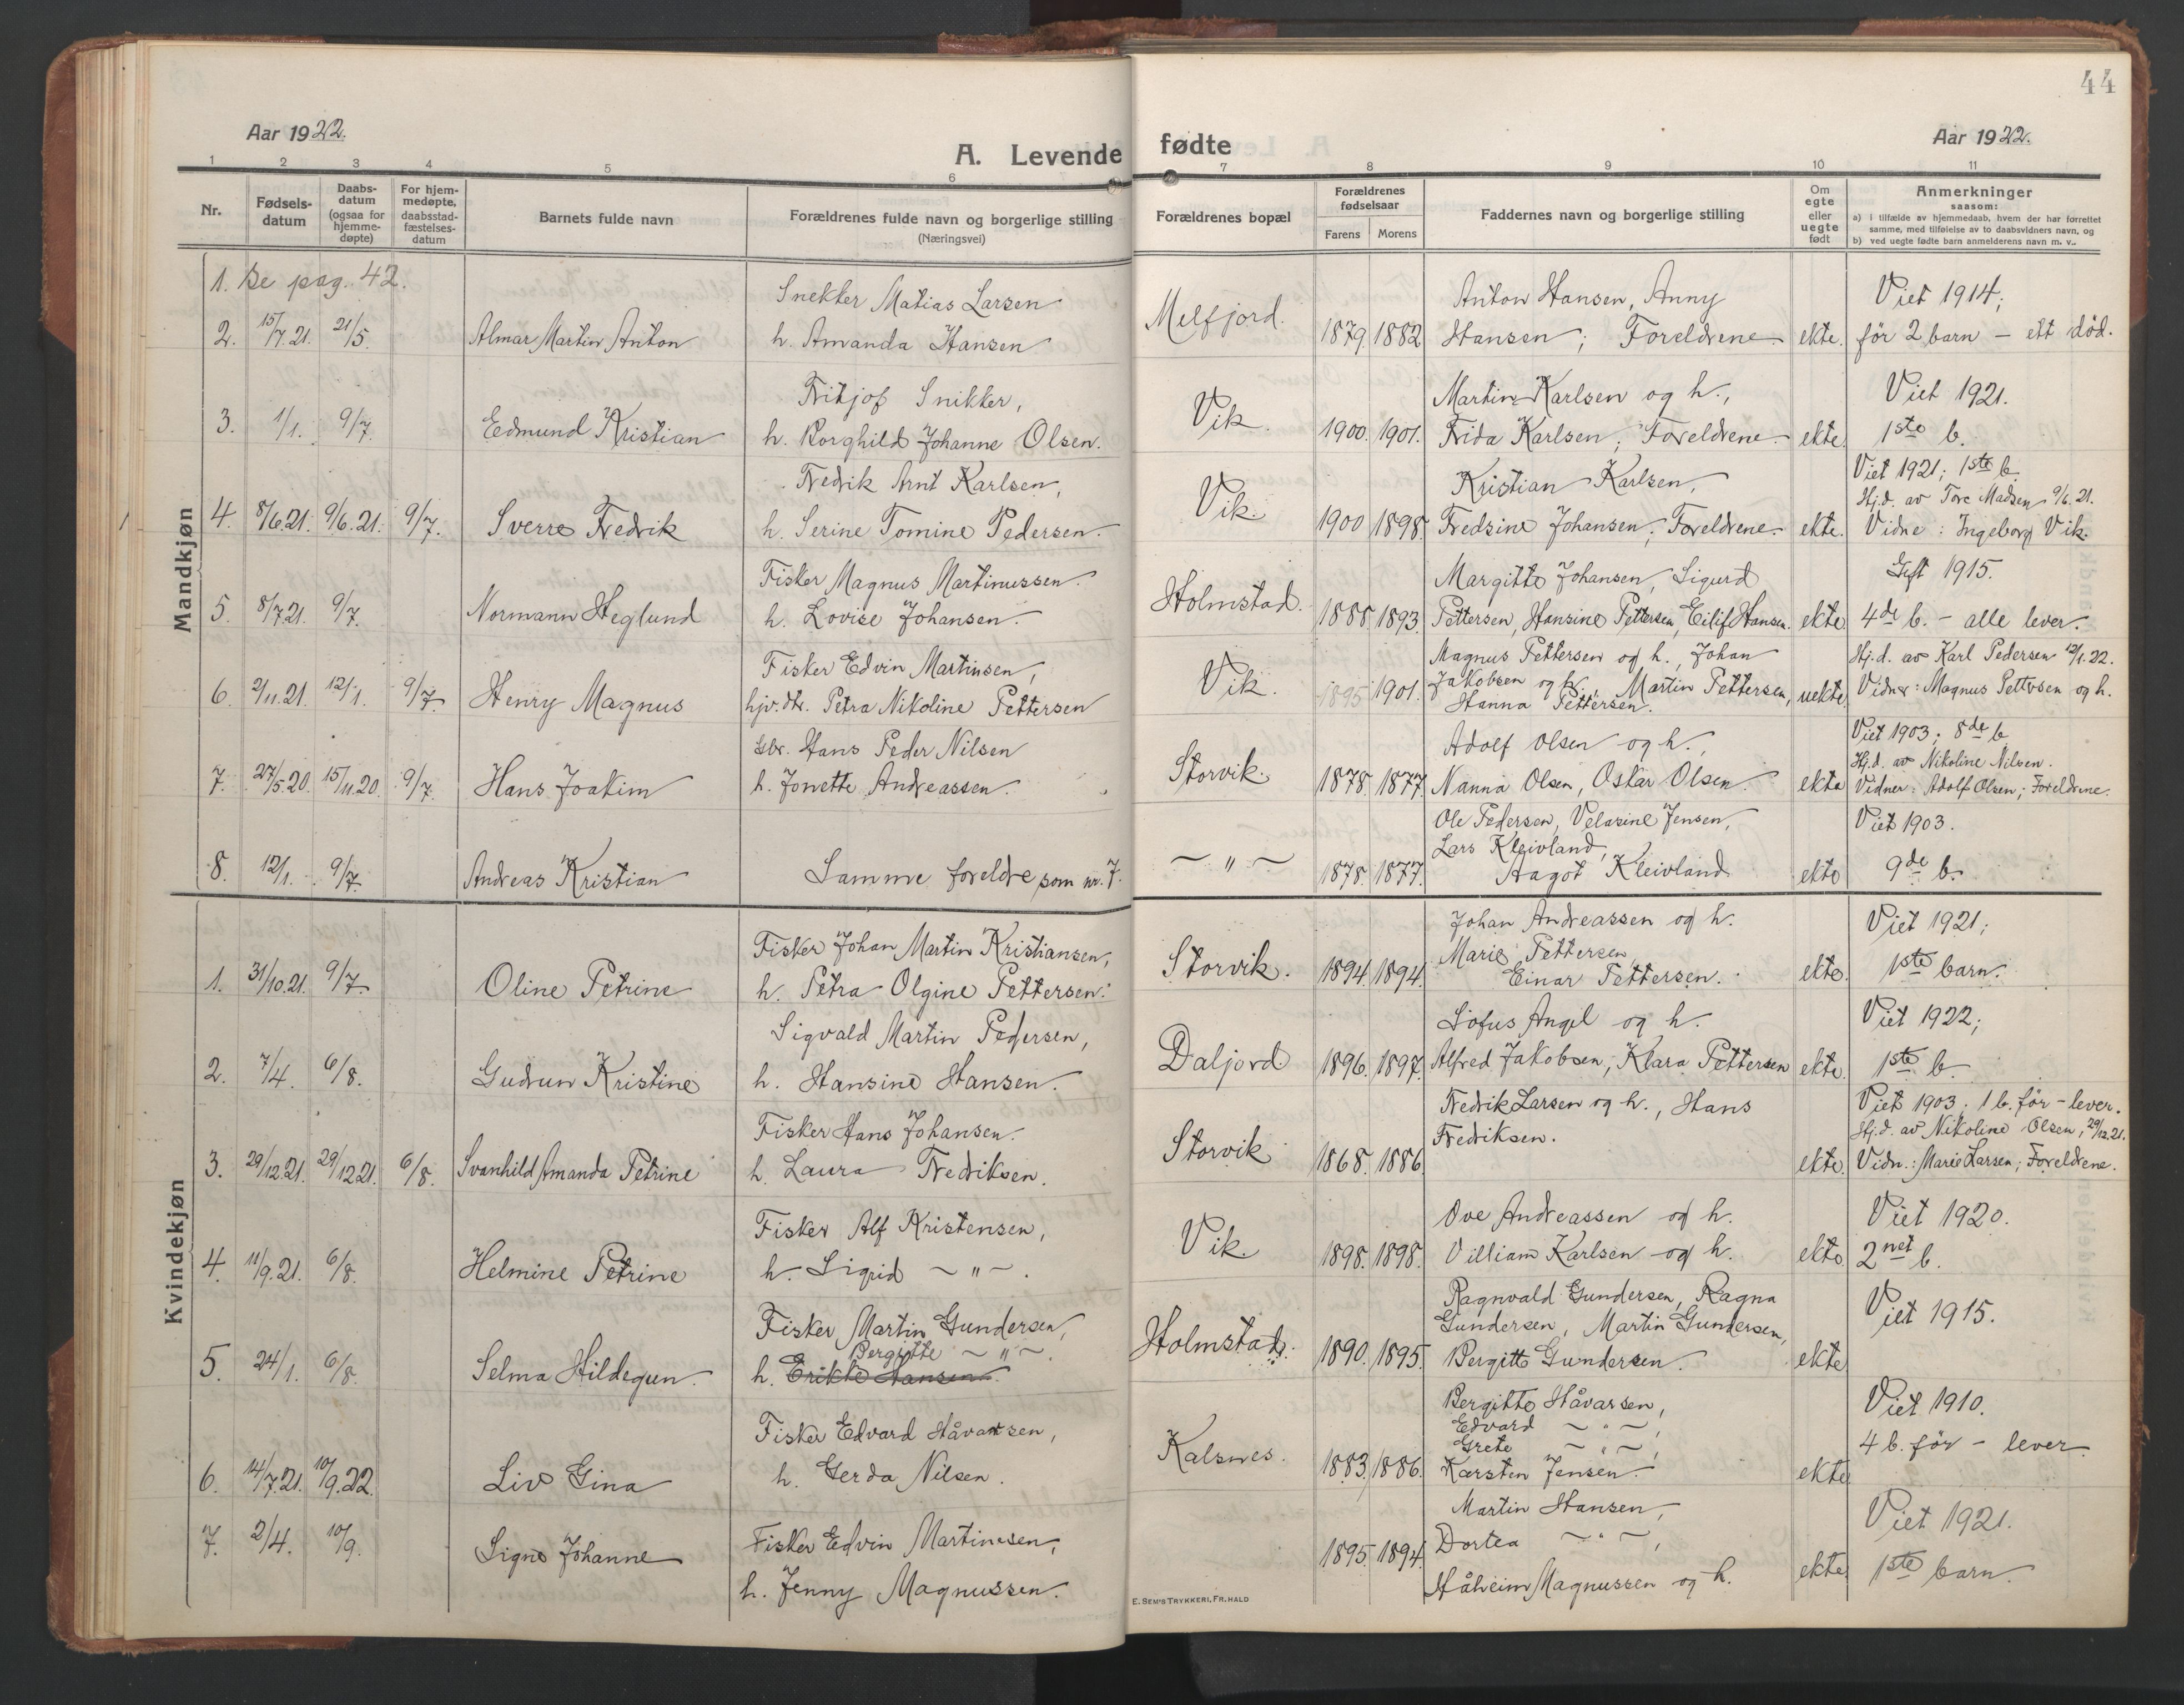 44
Aar 1922.
A. Levende fødte
Aar 1922.
1 2 3 4 5 6 7 8 9 10 11
Nr.
Fødsels-
datum
Daabs-
datum
(ogsaa for
hjemme-
døpte)
For hjem-
medøpte,
daabsstad-
fæstelses-
datum
Barnets fulde navn
Forældrenes fulde navn og borgerlige stilling
(Næringsvei)
Forældrenes bopæl
Forældrenes
fødselsaar
Farens Morens
Faddernes navn og borgerlige stilling
Om
egte
eller
uegte
født
Anmerkninger
saasom:
a) i tilfælde av hjemmedaab, hvem der har forrettet
samme, med tilføielse av to daabsvidners navn, og
b) ved uegte fødte barn anmelderens navn m. v..
Mandkjøn
1. Se pag. 42.
Snekker Matias Larsen Anton Hansen, Anny Viet 1914;
2. 15/7.21. 21/5. Almar Martin Anton h. Amanda Hansen Melfjord. 1879. 1882 Hansen; Foreldrene ekte. för 2 barn – ett död.
Fritjof Snikker, Martin Karlsen og h., Viet 1921.
3. 1/1. 9/7. Edmund Kristian h. Borghild Johanne Olsen. Vik. 1900. 1901. Frida Karlsen; Foreldrene ekte. 1ste b.
Fredrik Arnt Karlsen, Kristian Karlsen, Viet 1921; 1ste b.
Hj.d. av Tore Madsen 9/6.21.
4. 8/6.21. 9/6.21. 9/7. Sverre Fredrik h. Serine Tomine Pedersen. Vik. 1900 1898. Fredsine Johansen; Foreldrene. ekte. Vidne: Ingeborg Vik.
Fisker Magnus Martinussen. Margitte Johansen, Sigurd Gift 1915.
5. 8/7.21. 9/7. Normann Heglund h. Lovise Johansen. Holmstad. 1888. 1893. Pettersen, Hansine Pettersen, Eilif Hansen. ekte 4de b. – alle lever.
Fisker Edvin Martinsen, Magnus Pettersen og h., Johan Hj.d. av Karl Pedersen 12/1.22.
6. 2/11.21. 12/1. 9/7. Henry Magnus hjv.dtr. Petra Nikoline Pettersen Vik. 1895 1901. Jakobsen og h., Martin Pettersen, uekte. Vidner: Magnus Pettersen og h.
Hanna Pettersen.
Hans Peder Nilsen Adolf Olsen og h., Viet 1903; 8de b
Hj.d. av Nikoline Nilsen.
7. 27/5.20. 15/11.20. 9/7. Hans Joakim h. Jonette Andreassen. Storvik. 1878. 1877. Nanna Olsen, Oskar Olsen. ekte Vidner: Adolf Olsen; Foreldrene.
Ole Pedersen, Velasine Jensen, Viet 1903.
Lars Kleivland,
8. 12/1. 9/7. Andreas Kristian Samme foreldre som nr. 7. – " – 1878. 1877. Aagot Kleivland ekte 9de b.
Kvindekjøn
Fisker Johan Martin Kristiansen, Johan Andreassen og h. Viet 1921;
Marie Pettersen,
1. 31/10.21. 9/7. Oline Petrine h. Petra Olgine Pettersen. Storvik. 1894. 1894. Einar Pettersen. ekte. 1ste barn.
Sigvald Martin Pedersen, Sofus Angel og h. Viet 1922;
2. 7/4. 6/8. Gudrun Kristine h. Hansine Hansen. Daljord 1896. 1897. Alfred Jakobsen, Klara Pettersen ekte. 1ste b.
Fisker Hans Johansen. Fredrik Larsen og h., Hans Viet 1903; 1 b. för – lever.
Fredriksen. Hj.d. av Nikoline Olsen, 29/12.21.
3. 29/12.21. 29/12.21. 6/8. Svanhild Amanda Petrine h. Laura Fredriksen. Storvik 1868. 1886. ekte. Vidn.: Marie Larsen; Foreldrene.
Fisker Alf Kristensen, Ove Andreassen og h. Viet 1920.
4. 11/9.21. 6/8. Helmine Petrine h. Sigrid – " –. Vik. 1898. 1898. Villiam Karlsen og h. ekte. 2net b.
Fisker Martin Gundersen, Ragnvald Gundersen, Ragna Viet 1915.
Bergitte – " –. Gundersen, Martin Gundersen,
5. 24/1. 6/8. Selma Hildegun. h. Erikke Hansen. Holmstad. 1890. 1895. Bergitte Gundersen. ekte
Fisker Edvard Håvarsen, Bergitte Håvarsen, Viet 1910.
Edvard – " –,
Grete – " –, 4 b. för – lever
6. 14/7.21. 10/9.22. Liv Gina h. Gerda Nilsen. Kalsnes. 1883. 1886. Karsten Jensen. ekte
Martin Hansen, Viet 1921.
7. 2/4. 10/9. Signe Johanne Fisker Edvin Martinesen, 1895. 1894. Dortea – " –, ekte 1ste barn.
h. Jenny Magnussen. Håheim Magnussen og h.
E. SEM'S TRYKKERI, FR.HALD